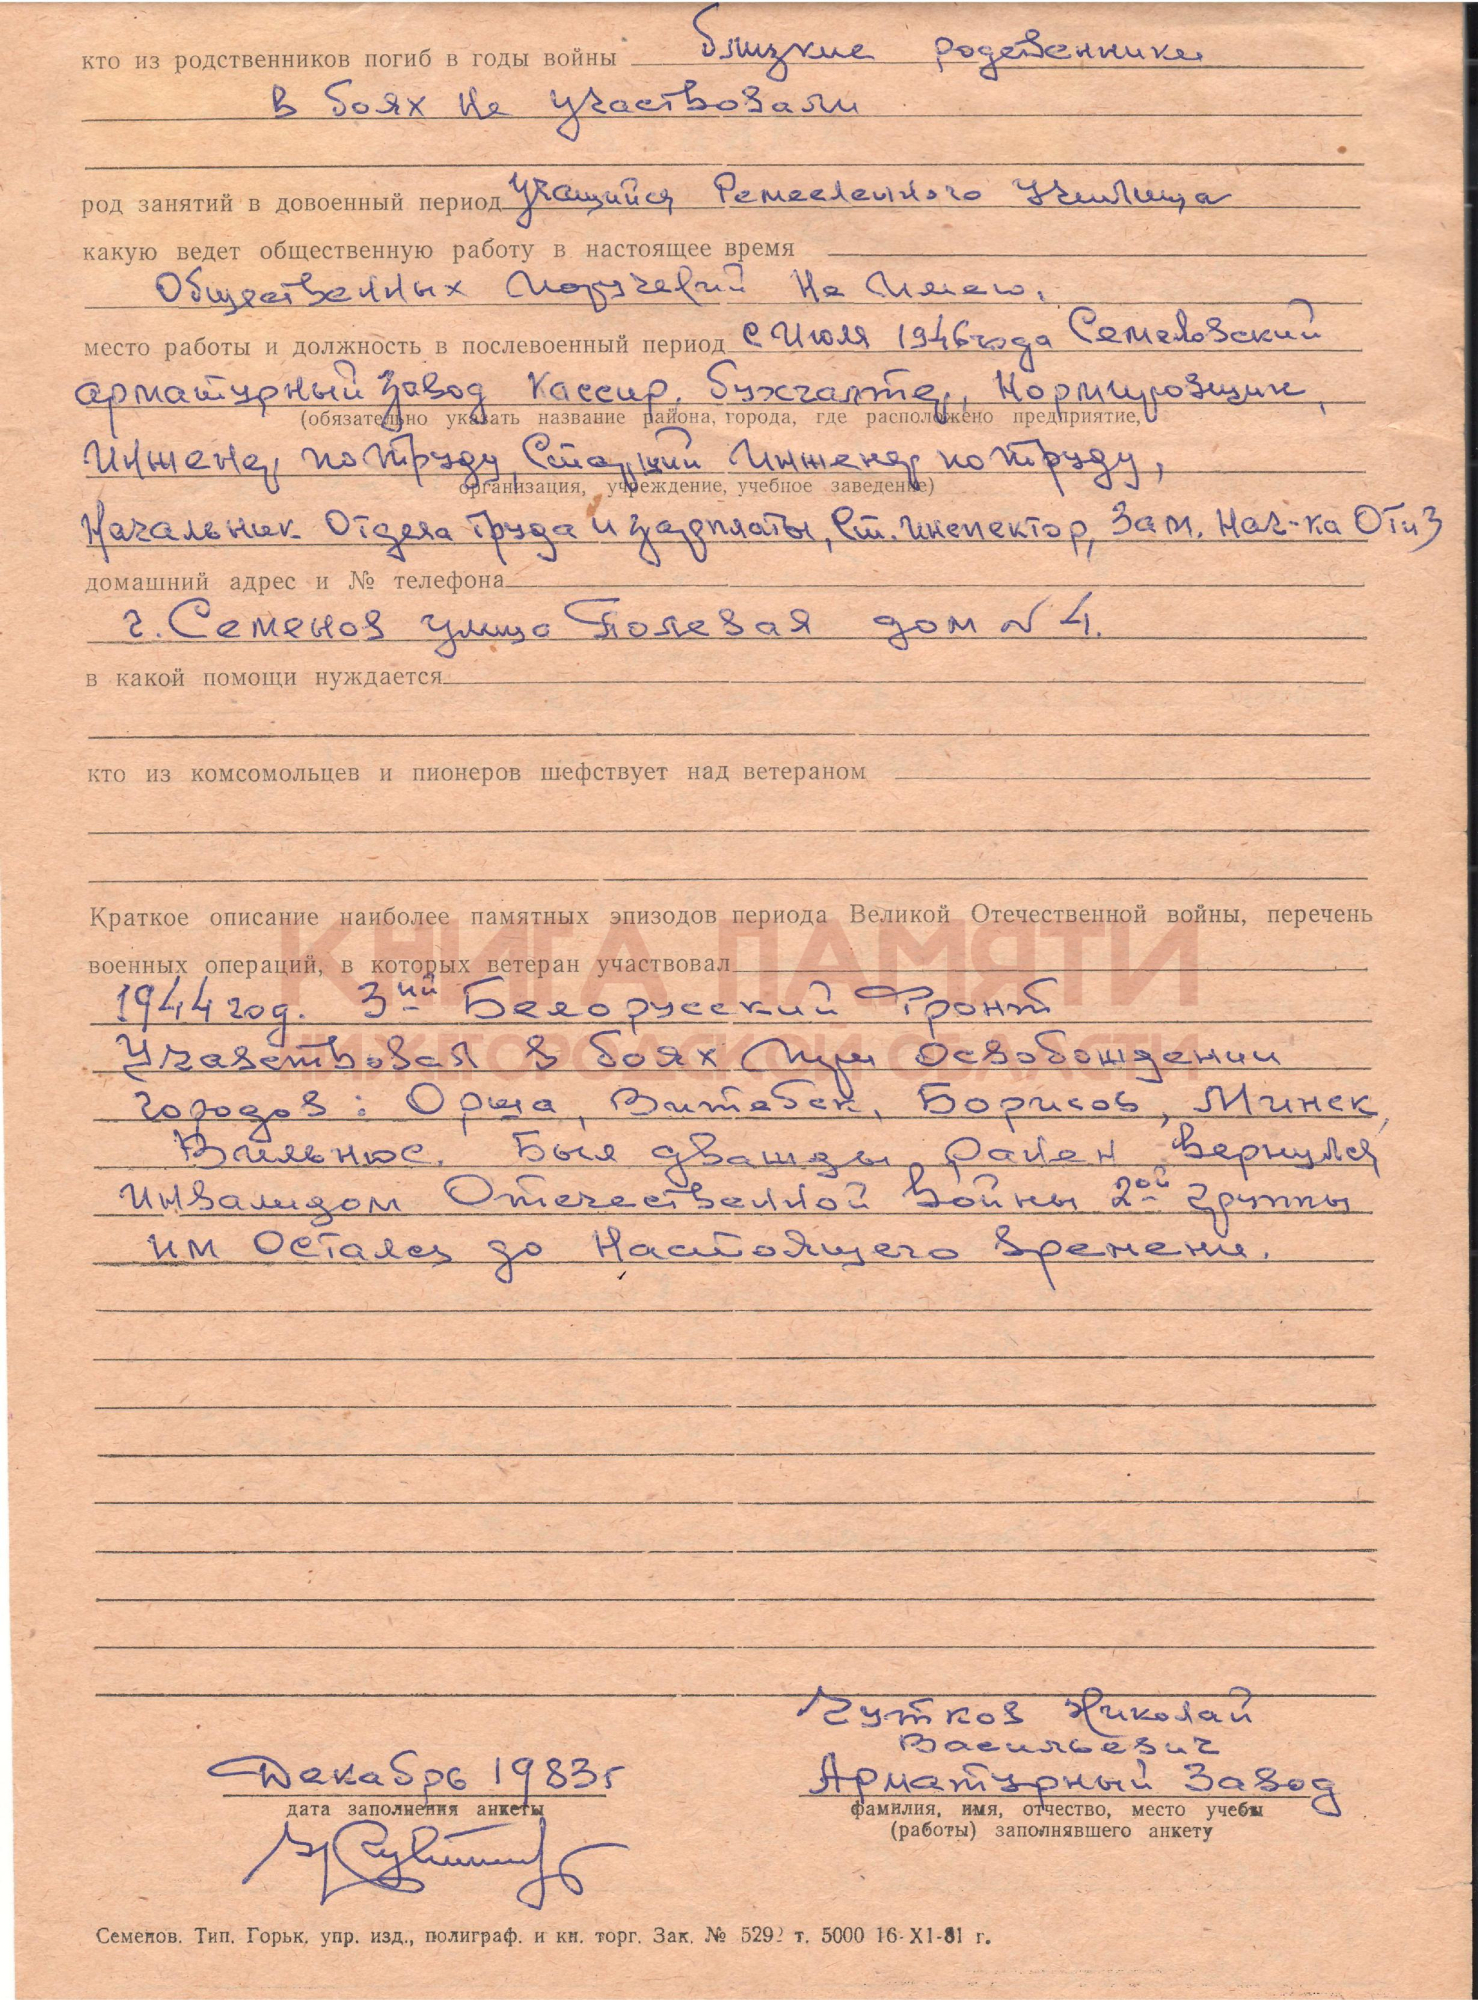 кто из родственников погиб в годы войны близкие родственники
в боях не участвовали
род занятий в довоенный период Учащийся Ремесленного Училища
какую ведет общественную работу в настоящее время
Общественных поручений не имею.
место работы и должность в послевоенный период с Июля 1946 года Семеновский
арматурный завод Кассир, бухгалтер, Нормировщик,
(обязательно указать название района, города, где расположено предприятие,
Инженер по труду, Старший Инженер по труду,
организация, учреждение, учебное заведение)
Начальник Отдела труда и зарплаты, Ст. инспектор, Зам. Нач-ка ОТиЗ
домашний адрес и № телефона
г. Семенов улица Полевая дом № 4.
в какой помощи нуждается
кто из комсомольцев и пионеров шефствует над ветераном
Краткое описание наиболее памятных эпизодов периода Великой Отечественной войны, перечень
КНИГА ПАМЯТИ
военных операций, в которых ветеран участвовал
1944 год. 3ий Белорусский Фронт
Участвовал в боях при освобождении
НИЖЕГОРОДСКОЙ ОБЛАСТИ
городов: Орша, Витебск, Борисов, Минск,
Вильнюс. Был дважды ранен вернулся
инвалидом Отечественной Войны 2ой группы
им остался до настоящего времени.
Чутков Николай
Васильевич
Декабрь 1983г Арматурный Завод
дата заполнения анкеты фамилия, имя, отчество, место учебы
(работы) заполнявшего анкету
Семенов. Тип. Горьк. упр. изд., полиграф. и кн. торг. Зак. № 5292 т. 5000 16-XI-81 г.